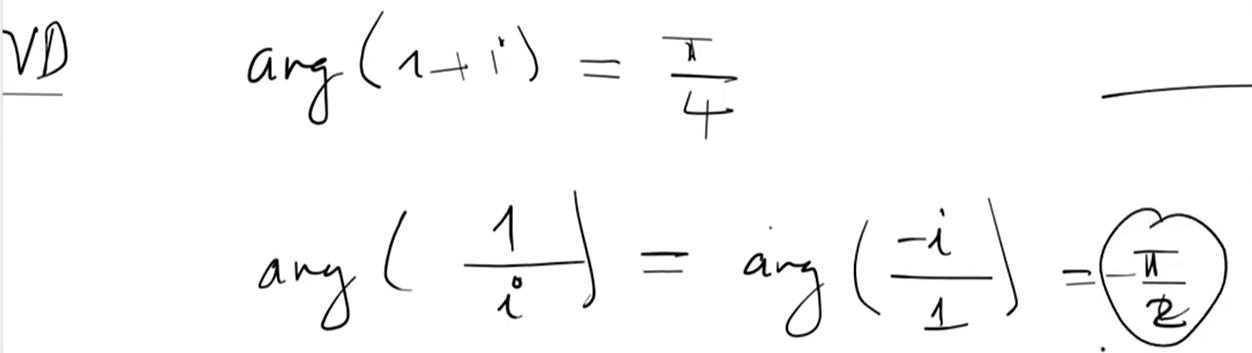 VD arg(1+i) = π/4
arg(1/i) = arg(-i/1) = -π/2